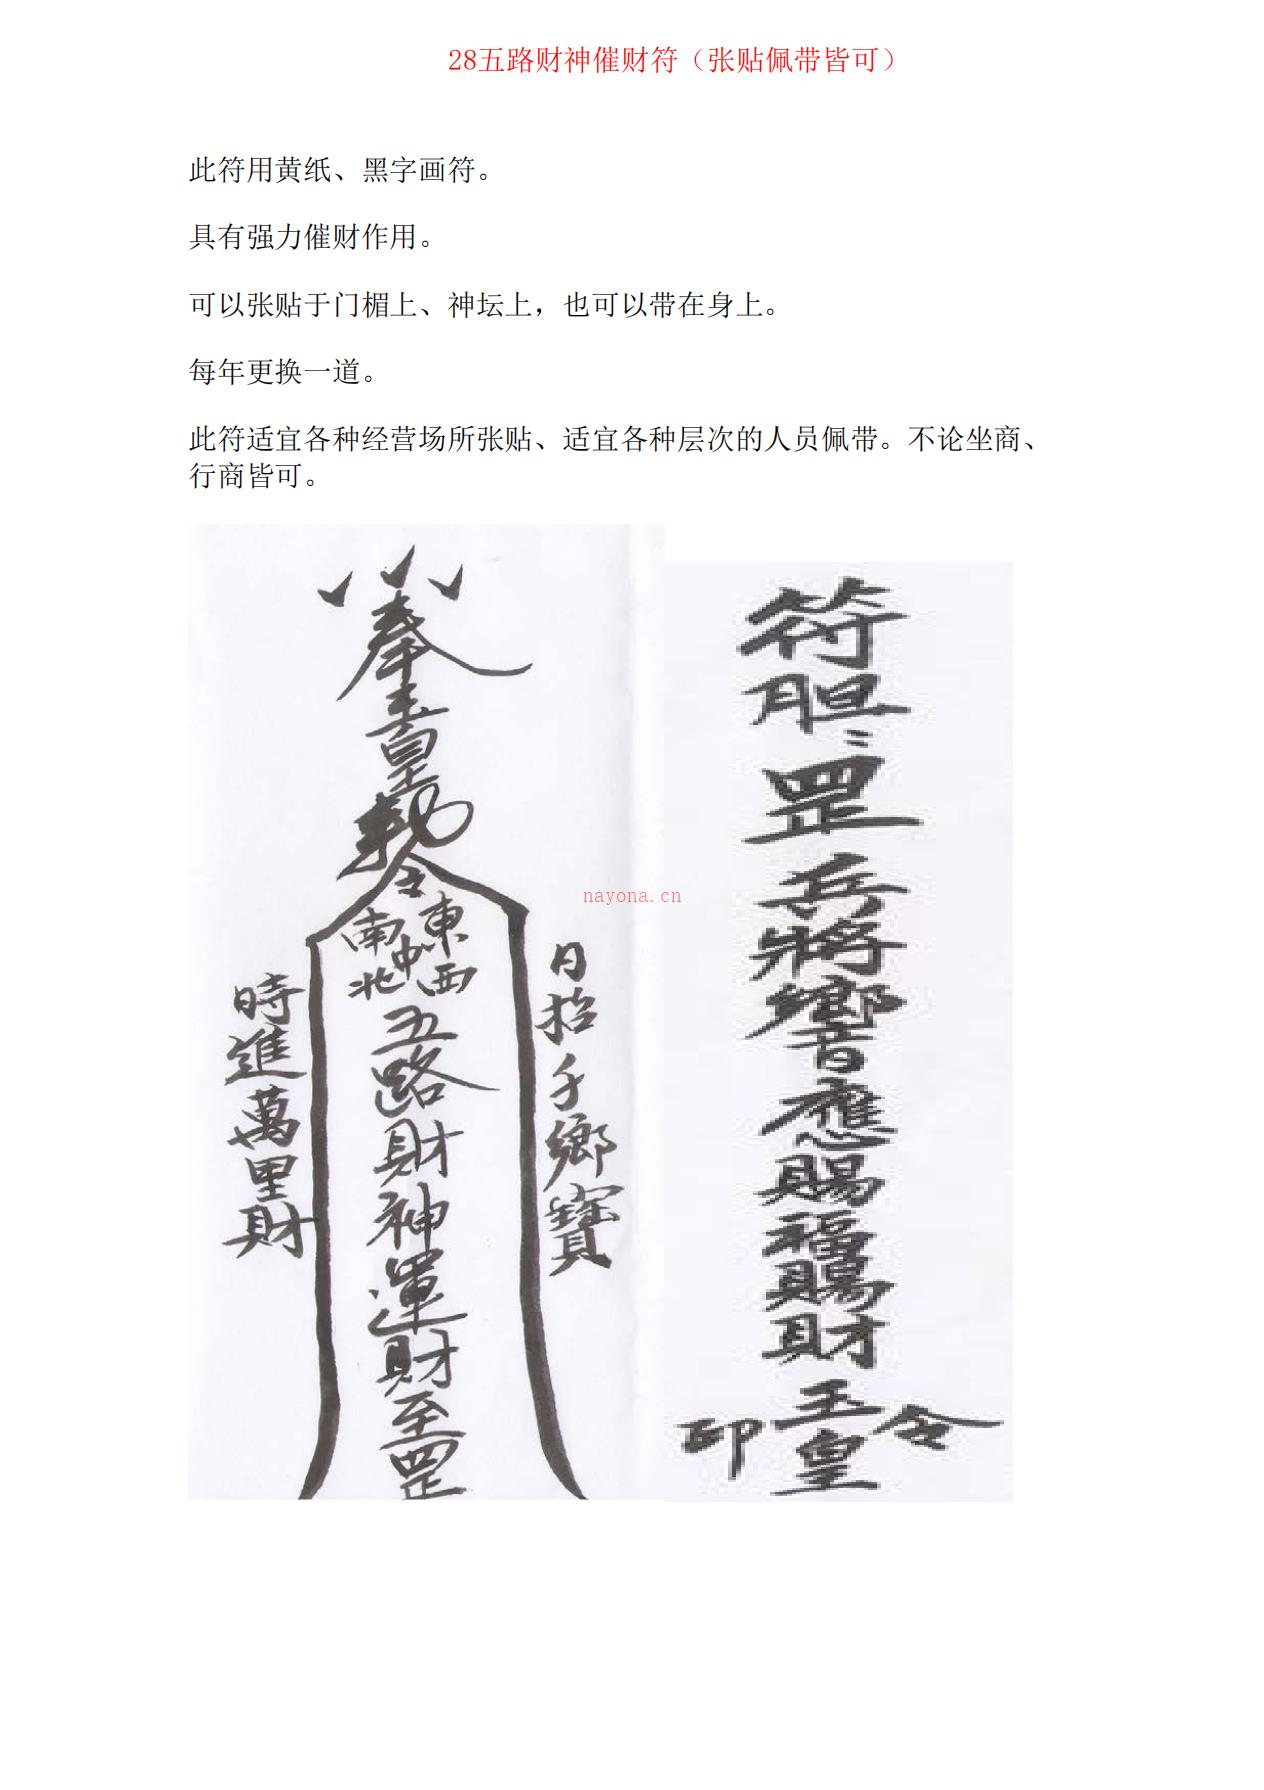 28五路财神催财符（张贴佩带皆可）
此符用黄纸、黑字画符。
具有强力催财作用。
可以张贴于门楣上、神坛上，也可以带在身上。
每年更换一道。
此符适宜各种经营场所张贴、适宜各种层次的人员佩带。不论坐商、
行商皆可。
奉玉皇勅令
東西南北中
五路財神運財至罡
日招千鄉寶
時進萬里財
符胆：
罡兵將響應賜福賜財
玉皇
令
印
nayona.cn